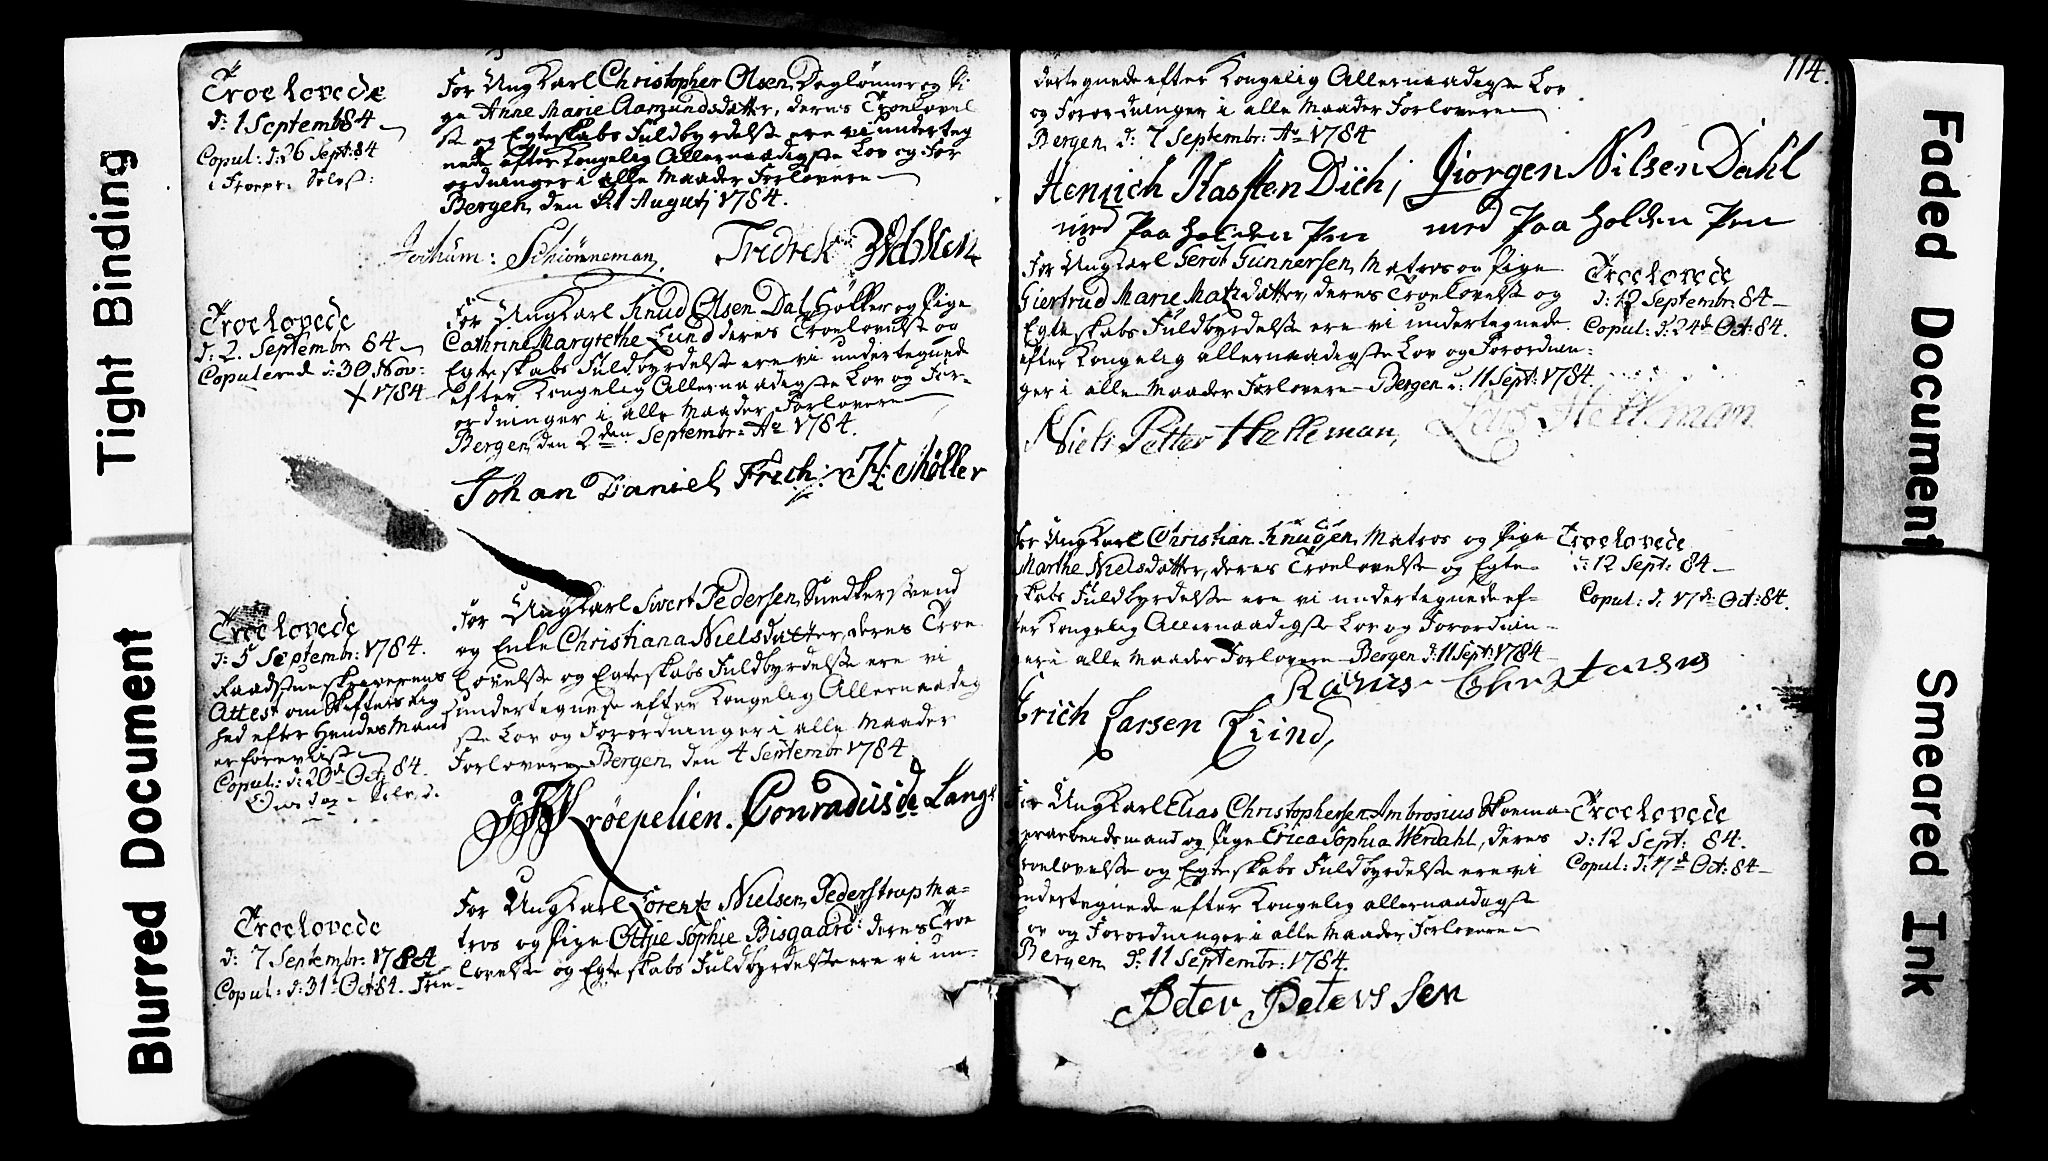 Troelovede
d: 1 Septemb 84
Copul: d: 26 Sept: 84
For Ung Karl Christopher Olsen, Daglønner og Pi
ge Anne Marie Aamundsdatter, deres Troelovel
se og Egteskabs Fuldbyrdelse ere vi underteg
nede efter Kongelig Allernaadigste Lov og For
ordninger i alle Maader Forlovere
Bergen, den 1 Augustj 1784.
Jochum: Schiønneman,
Troelovede
d: 2. Septembr: 84
Copulerede d: 30. Nov:
1784
For Ung Karl Knud Olsen Dal, Høkker og Pige
Cathrine Margrethe Lund deres Troelovelse og
Egteskabs Fuldbyrdelse ere vi undertegnede
efter Kongelig Allernaadigste Lov og For-
ordninger i alle Maader Forlovere
Bergen, den 2den Septembr: Ao 1784.
Johan Daniel Frich: H: Møller
Troelovede
d: 5 Septembr: 1784.
Raadstueskriverens
Attest om Skifterigtig
hed efter Hendes Mand
er foreviist
Copul: d: 20d Oct: 84.
For Ung Karl Sivert Pedersen, Snedkersvend
og Enke Christiana Nielsdatter, deres Troe
lovelse og Egteskabs Fuldbyrdelse ere vi
undertegnede efter Kongelig Allernaadig
ste Lov og Forordninger i alle Maader
Forlovere Bergen, den 4 Septembr 1784
Krøepelien. Conradus de Lange
Troelovede
d: 7 Septembr: 1784
Copul: d: 31t Oct 84.
For Ung Karl Lorentz Nielsen Pederstrup Ma-
tros og Pige Ottjie Sophie Bisgaard: deres Troe
lovelse og Egteskabs Fuldbyrdelse ere vi un-
114.
dertegnede efter Kongelig Allernaadigste Lov
og Forordninger i alle Maader Forlovere
Bergen, d: 7 Septembr: Ao 1784
Henrich Kassten Dich, Giorgen Nilsen Dahl
med Paa holden Pen med Paa holden Pen
For Ung Karl Gerdt Gunnersen, Matros og Pige
Giertrud Marie Matzdatter, deres Troelovelse og
Egteskabs Fuldbyrdelse ere vi undertegnede
efter Kongelig allernaadigste Lov og Forordnin-
ger i alle Maader Forlovere Bergen d: 11 Sept: 1784.
Troelovede
d: 12 Septembr: 84
Copul: d: 24d Oct: 84.
Niels Petter Helleman, Lars Hellman
For Ung Karl Christian Knudsen, Matros og Pige
Marthe Nielsdatter, deres Troelovelse og Egte-
skabs Fuldbyrdelse ere vi undertegnede ef-
ter Kongelig Allernaadigste Lov og Forordnin-
ger i alle Maader Forlovere Bergen d: 11 Sept: 1784
Troelovede
d: 12 Sept: 84
Copul: d. 17d Oct: 84.
Rasmus
Erich Larsen Liind,
For Ung Karl Elias Christophersen Ambrosius Skoema-
gerarbeidsmand og Pige Erica Sophia Werdahl, deres
Troelovelse og Egteskabs Fuldbyrdelse ere vi
undertegnede efter Kongelig allernaadigst
Lov og Forordninger i alle Maader Forlovere
Bergen, d: 11 Septembr: 1784.
Troelovede
d: 12 Sept: 84.
Copul: d: 17d Oct: 84
Peter Peterssen
Tight Binding
Blurred Document
Faded Document
Smeared Ink